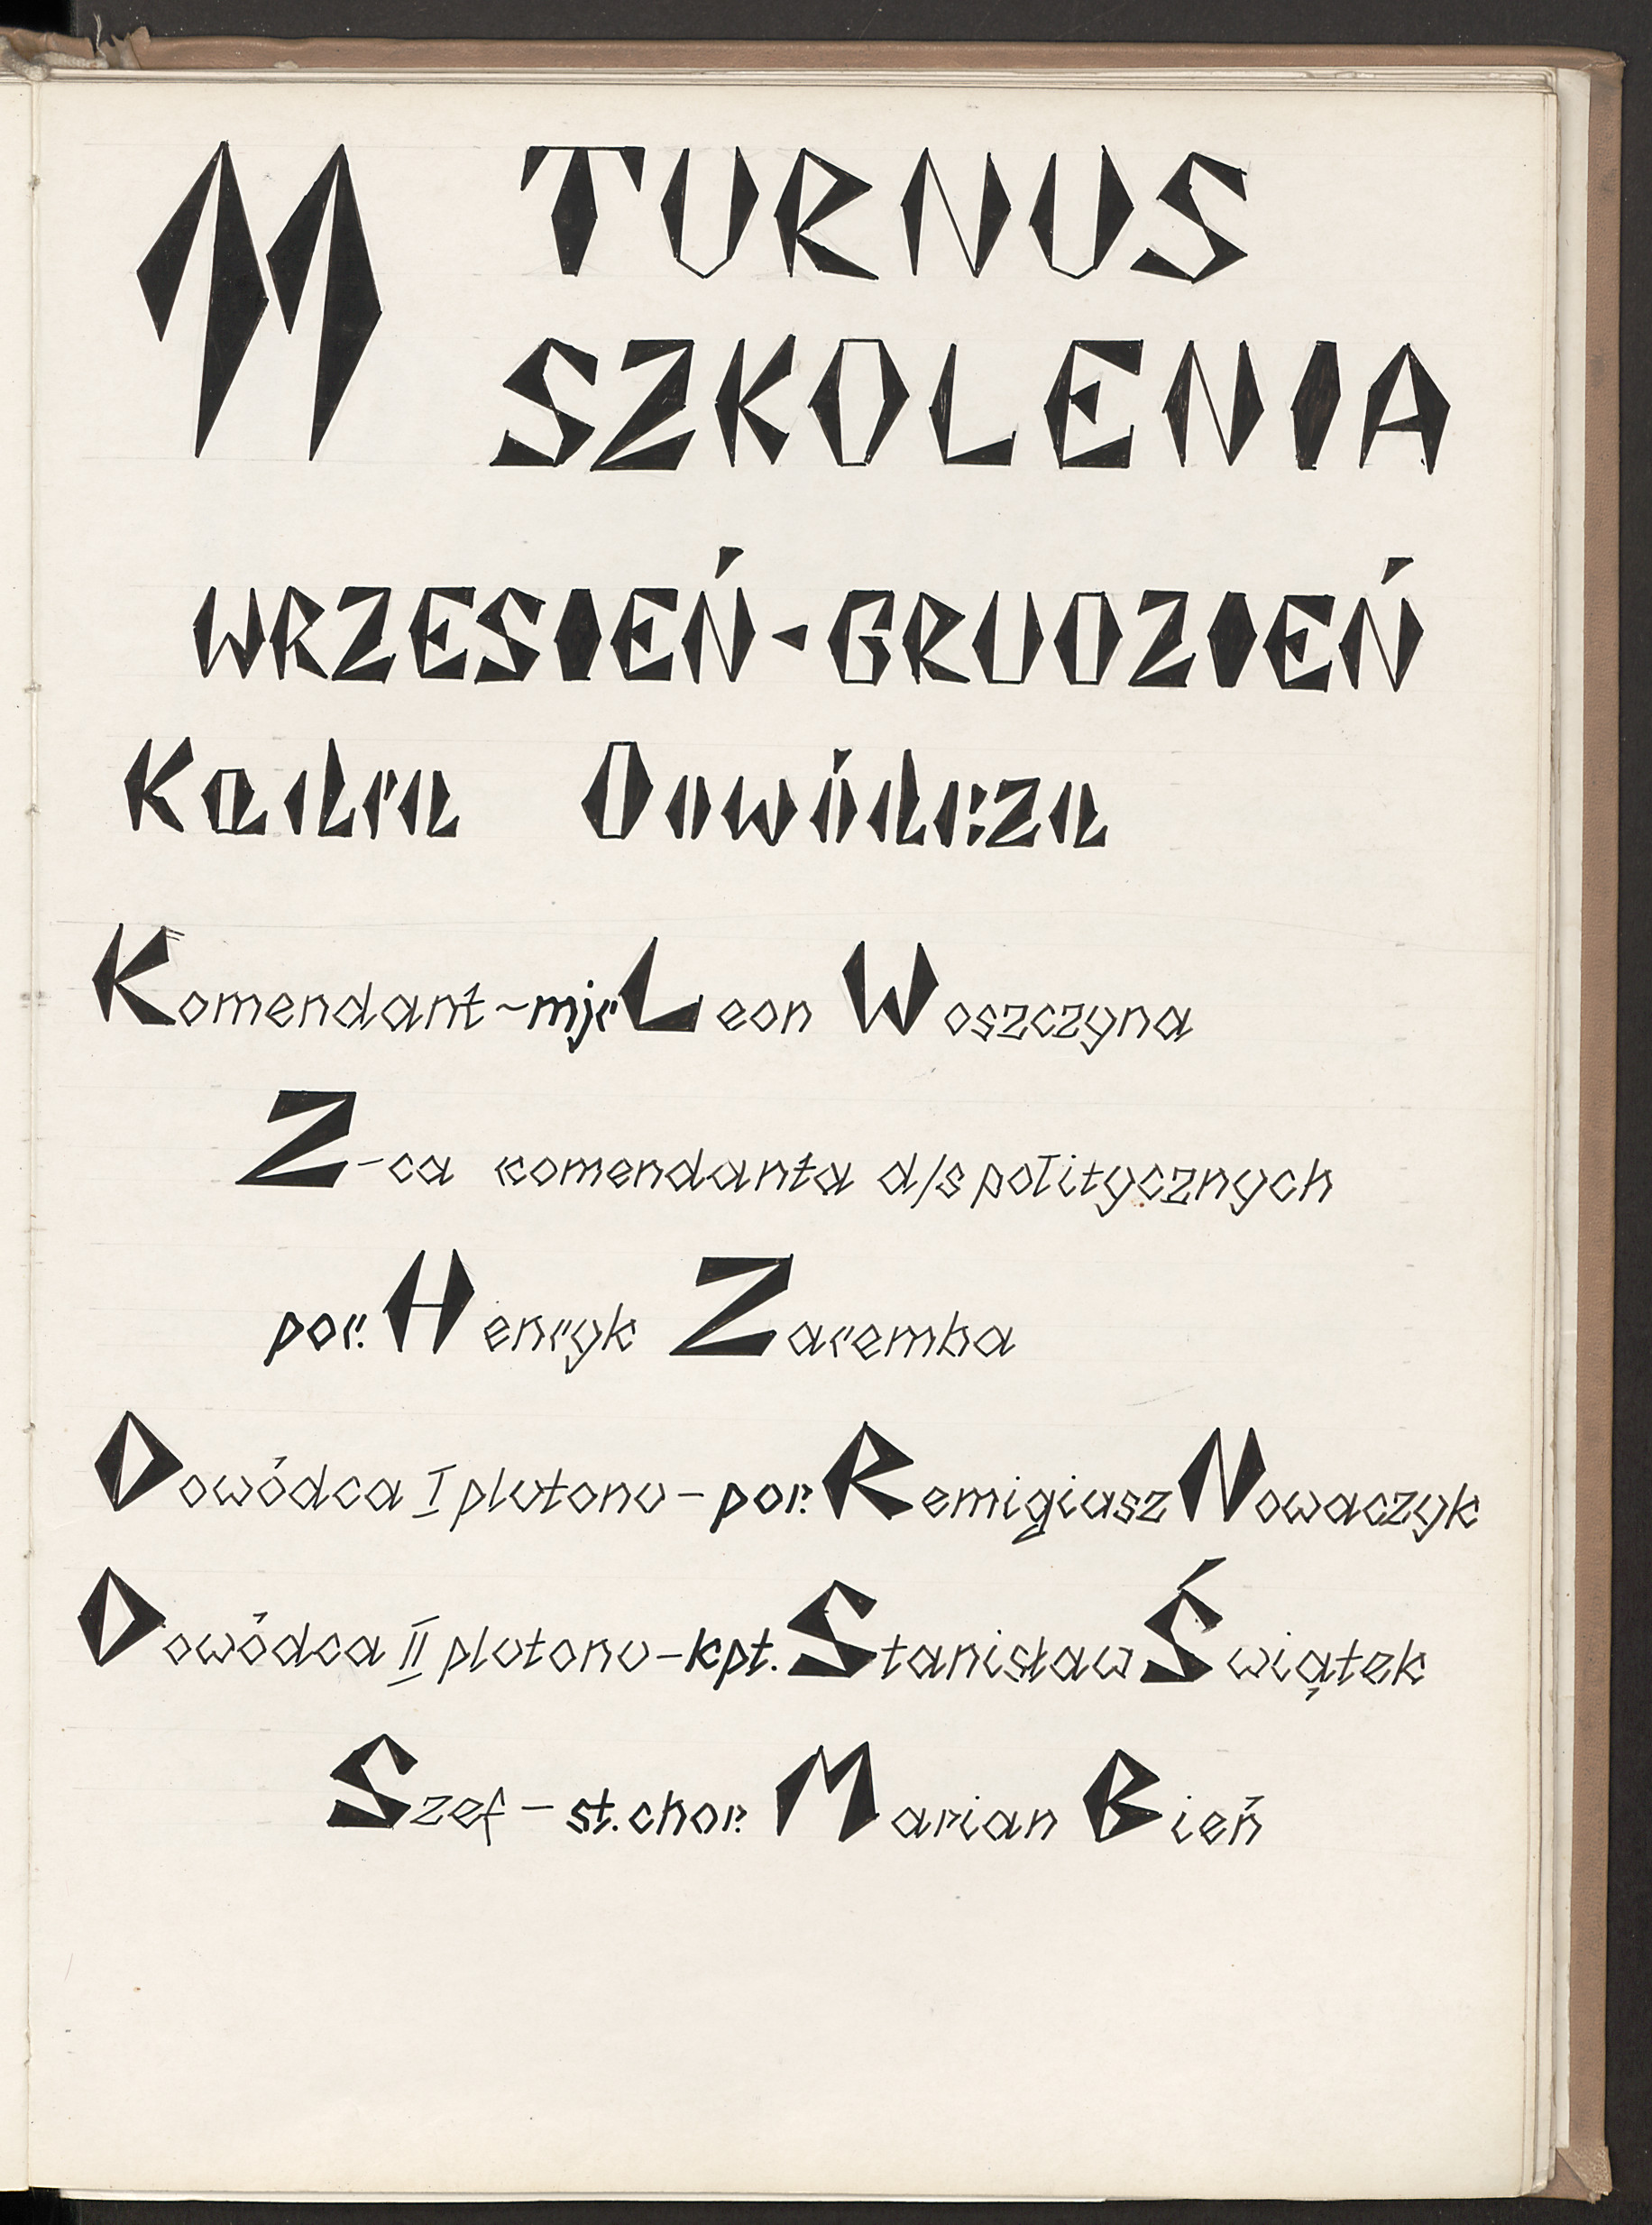 11 TURNUS
SZKOLENIA
WRZESIEŃ-GRUDZIEŃ
Kadra Dowódcza
Komendant-mjr Leon Woszczyna
Z-ca komendanta d/s politycznych
por. Henryk Zaremba
Dowódca I plutonu-por. Remigiusz Nowaczyk
Dowódca II plutonu-kpt. Stanisław Świątek
Szef-st.chor. Marian Bień